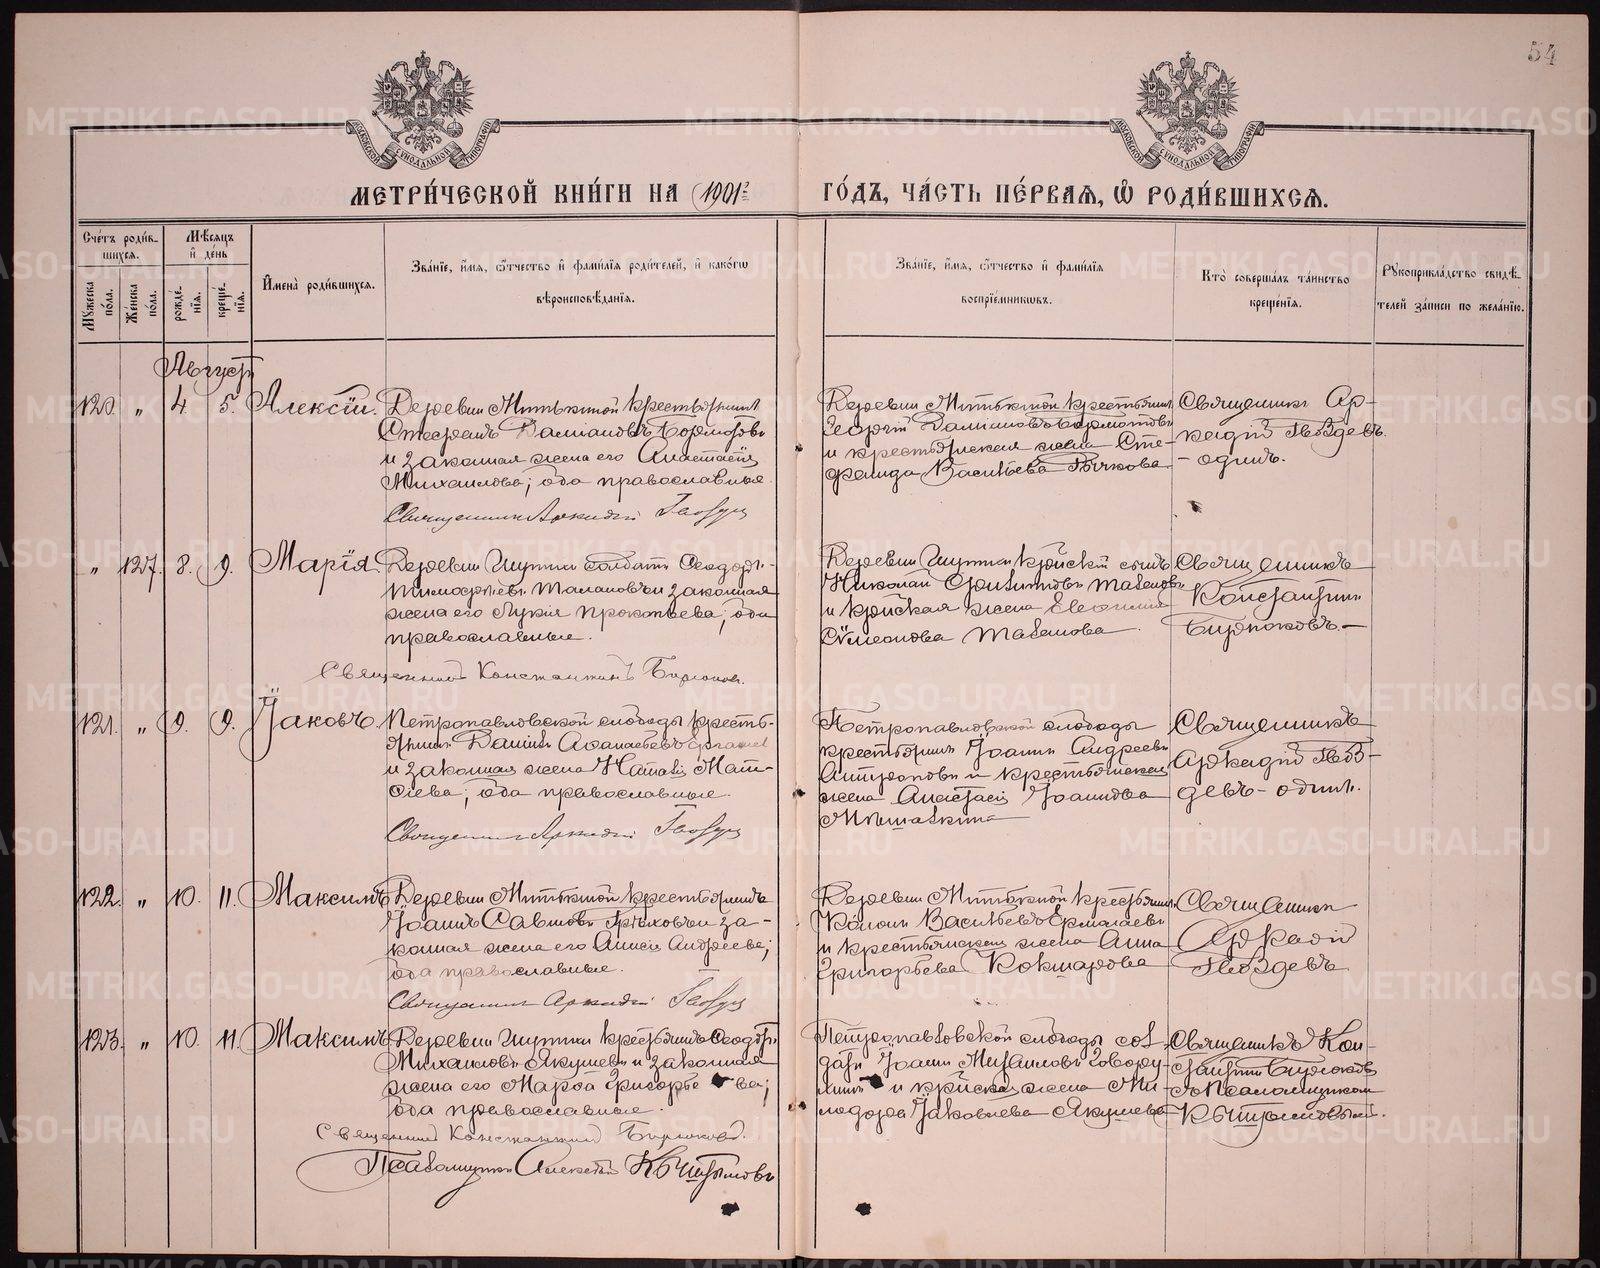 54
МЕТРИ́ЧЕСКОЙ КНИ́ГИ НА 1901й ГО́ДЪ, ЧА́СТЬ ПЕ́РВАѦ, Ѡ҆ РОДИ́ВШИХСѦ.
Сче́тъ роди́в-
шихсѧ.
Мꙋжеска по́ла.
Же́нска по́ла.
Мѣ́сѧцъ
и҆ де́нь
рожде́-
нїѧ.
креще́-
нїѧ.
И҆мена̀ роди́вшихсѧ.
Зва́нїе, и҆́мѧ, ѻ҆́тчество и҆ фами́лїѧ роди́телей, и҆ како́гѡ
вѣроисповѣ́данїѧ.
Зва́нїе, и҆́мѧ, ѻ҆́тчество и҆ фами́лїѧ
воспрїе́мникѡвъ.
Кто̀ соверша́лъ та́инство
креще́нїѧ.
Рꙋкоприкла́дство свидѣ́-
телей за́писи по жела́нїю.
Августъ
120. " 4. 5. Алексій.
Деревни Митькиной крестьянинъ
Стефанъ Даміановъ Бармотовъ
и законная жена его Анастасія
Михаилова; оба православные
Священникъ Аркадій Гвоздевъ
Деревни Митькиной крестьянинъ
Георгій Даміановъ Бармотовъ
и крестьянская жена Сте-
фанида Васильева Рычкова.
Священникъ Ар-
кадій Гвоздевъ
- одинъ.
" 127. 8. 9. Марія.
Деревни солдатъ Ѳеодоръ
Тимофѣевъ и законная
жена его Лукія Прокопьева; оба
православные.
Священникъ Константинъ Бирюковъ.
Деревни крⷭ҇тьйскій сынъ
Николай
и крⷭ҇тьйская жена Евѳимія
Сѵмеонова
Священникъ
Константинъ
Бирюковъ.—
121. " 9. 9. Іаковъ.
Петропавловской слободы кресть-
янинъ Даніилъ Аѳанасьевъ
и законная жена Наталія Мат-
ѳіева; оба православные.
Священникъ Аркадій Гвоздевъ
Петропавловской слободы
крестьянинъ Іоаннъ Андреевъ
Антроповъ и крестьянская
жена Анастасія Іоаннова
Мѣшавкина
Священникъ
Аркадій Гвоз-
девъ - одинъ.
122. " 10. 11. Максимъ
Деревни Митькиной крестьянинъ
Іоаннъ Саввиновъ Грѣховъ и за-
конная жена его Анисія Андреева;
оба православные.
Священникъ Аркадій Гвоздевъ
Деревни Митькиной крестьянинъ
Васильевъ Ермолаевъ
и крестьянская жена Анна
Григорьева Кокшарова
Священникъ
Аркадій
Гвоздевъ
123. " 10. 11. Максимъ
Деревни крестьянинъ Ѳеодоръ
Михаиловъ Якушевъ и законная
жена его Марѳа Григорьева;
оба православные.
Священникъ Константинъ Бирюковъ.
Псаломщикъ Алексѣй Кыштымовъ
Петропавловской слободы сол-
датъ Іоаннъ Михаиловъ Говору-
хинъ и крⷭ҇тьйская жена Ми-
лодора Іаковлева Якушева
Священникъ Кон-
стантинъ Бирюковъ
съ Псаломщикомъ
Кыштымовымъ.